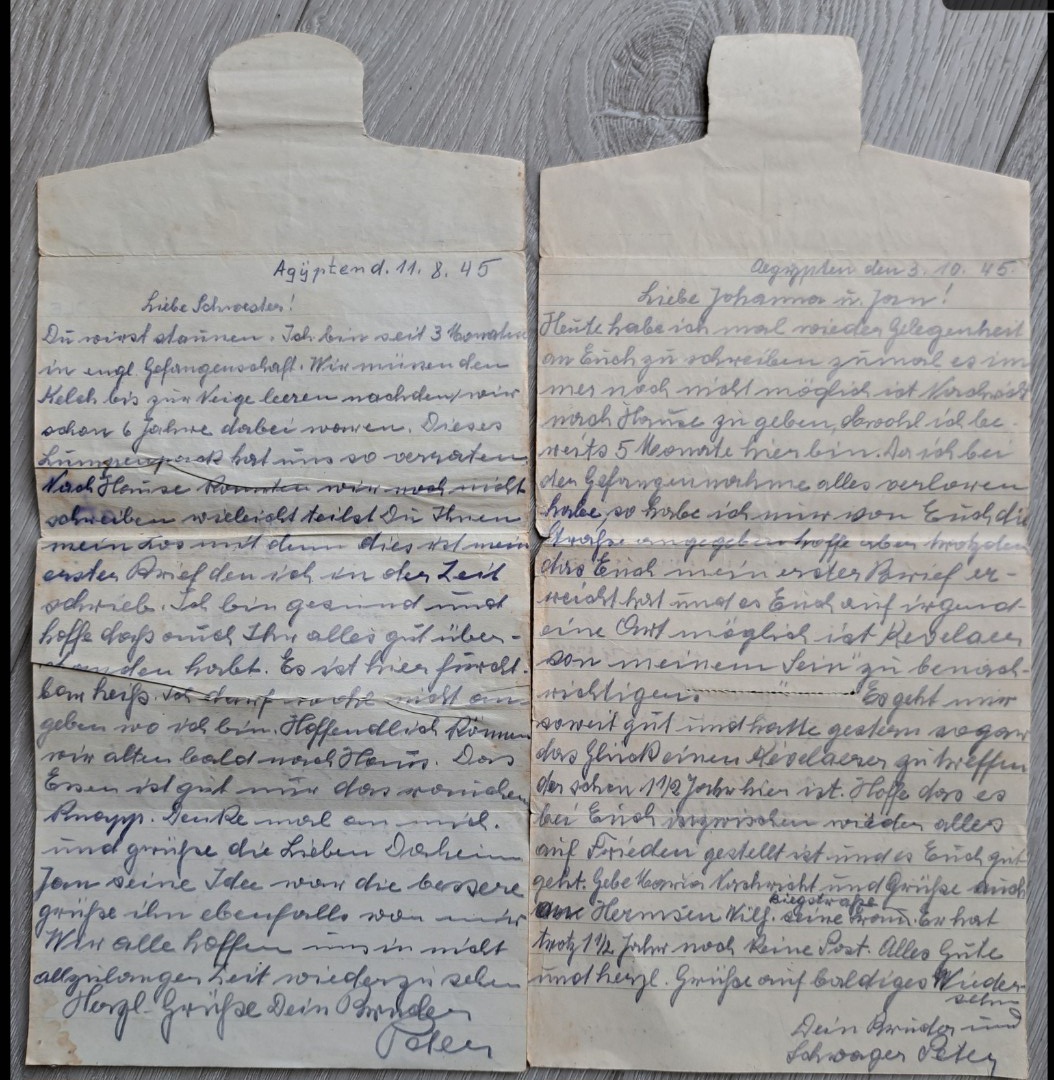 Agÿpten d. 11. 8. 45
Liebe Schwester!
Du wirst staunen. Ich bin seit 3 Monaten
in engl. Gefangenschaft. Wir müssen den
Kelch bis zur Neige leeren nachdem wir
schon 6 Jahre dabei waren. Dieses
Lumpenpack hat uns so verraten
Nach Hause konnten wir noch nicht
schreiben vieleicht teilst Du Ihnen
mein Los mit denn dies ist mein
erster Brief den ich in der Zeit
schrieb. Ich bin gesund und
hoffe daß auch Ihr alles gut über-
standen habt. Es ist hier furcht-
bar heiß. Ich darf wohl nicht an-
geben wo ich bin. Hoffendlich können
wir alten bald nach Haus. Das
Essen ist gut nur das rauchen
Knapp. Denke mal an mich.
und grüße die Lieben Daheim
Jan seine Idee war die bessere
grüße ihn ebenfalls von mir
Wir alle hoffen uns in nicht
allzulanger Zeit wiederzusehen
Herzl. Grüße Dein Bruder
Peter
Aegypten den 3. 10. 45.
Liebe Johanna u. Jan!
Heute habe ich mal wieder Gelegenheit
an Euch zu schreiben zumal es im
mer noch nicht möglich ist Nachricht
nach Hause zu geben, obwohl ich be-
reits 5 Monate hier bin. Da ich bei
der Gefangennahme alles verloren
habe, so habe ich nur von Euch die
Straße angegeben hoffe aber trotzdem
das Euch mein erster Brief er-
reicht hat und es Euch auf irgend-
eine Art möglich ist Kevelaer
von meinem "Sein" zu benach-
richtigen. Es geht mir
soweit gut und hatte gestern sogar
das Glück einen Kevelaerer zu treffen
der schon 1 1/2 Jahr hier ist. Hoffe das es
bei Euch inzwischen wieder alles
auf Frieden gestellt ist und es Euch gut
geht. Gebe Maria Nachricht und Grüße auch
Hermsen Wilh. seine Frau. Er hat
trotz 1 1/2 Jahr noch keine Post. Alles Gute
und herzl. Grüße auf baldiges Wieder
sehn
Dein Bruder und
Schwager Peter